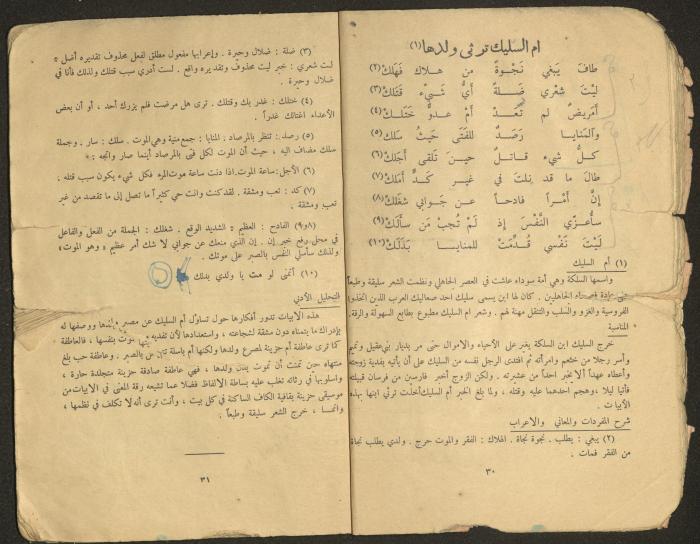 ام السليك ترثي ولدها (١)
طافَ يَبغي نَجْوَةً من هلاك فَهَلَكْ (٢)
لَيْتَ شعْري ضَلَةً أيُّ شَيْء قَتَلَكْ (٣)
أَمَريضٌ لم تُعَدْ أمْ عدوٌ خَتَلَكْ (٤)
والمَنايا رَصَدٌ للفَتَى حَيثُ سَلك (٥)
كلُّ شيء قاتلٌ حينَ تَلقى أجَلكْ (٦)
طالَ ما قد نلتَ في غير كَدٍّ أمَلكْ (٧)
إنَّ أمْراً فادحاً عن جوابي شغلَكْ (٨)
سأُعزّي النَّفْسَ إذ لَمْ تُجبْ مَن سأَلَكْ (٩)
لَيْتَ نَفْسي قُدِّمَتْ للمنايا بَدَلَكْ (١٠)
(١) أم السليك
واسمها السلكة وهي أمة سوداء عاشت في العصر الجاهلي ونظمت الشعر سليقة وطبعاً
الجاهليين . كان لها ابن يسمى سليك احد صعاليك العرب الذين اتخذوا
الفروسية والغزو والسلب والتنقل مهنة لهم . وشعر ام السليك مطبوع بطابع السهولة والرقة.
المناسبة
خرج السليك ابن السلكة يغير على الأحياء والاموال حتى مر بديار بني عقيل وتميم
وأسر رجلا من خثعم وامرأته ثم افتدى الرجل نفسه من السليك على أن يأتيه بفدية زوجته
وأعطاه عهداً ألا يخبر احداً من عشيرته . ولكن الزوج أخبر فارسين من فرسان قبيلته
فأتيا ليلا ،وهجم احدهما عليه وقتله . ولما بلغ الخبر أم السليك أخذت ترثي ابنها بهذه
الأبيات .
شرح المفردات والمعاني والاعراب
(٢) يبغي : يطلب . نجوة نجاة . الهلاك : الفقر والموت حرج . ولدي يطلب نجاة
من الفقر فمات .
٣٠
(٣) ضلة : ضلال وحيرة . وإعرابها مفعول مطلق لفعل محذوف تقديره أضل :
ليت شعري : خبر ليت محذوف وتقديره واقع . لست أدري سبب قتلك ولذلك فأنا في
ضلال وحيرة .
(٤) ختلك : غدر بك وقتلك . ترى هل مرضت فلم يزرك أحد ، أو أن بعض
الأعداء اغتالك غدراً .
(٥) رصد : تنتظر بالمرصاد . المنايا : جمع منية وهي الموت . سلك : سار . وجملة
سلك مضاف اليه ، حيث أن الموت لكل فتى بالمرصاد أينما صار واتجه :
(٦) الأجل : ساعة الموت. اذا دنت ساعة موت المرء فكل شيء يكون سبب قتله .
(٧) كد : تعب ومشقة . لقد كنت وانت حي كثيراً ما تصل إلى ما تقصد من غير
تعب ومشقة .
(٨و٩) الفادح : العظيم : الشديد الوقع . شغلك : الجملة من الفعل والفاعل
في محل رفع خبر إن . إن الذي منعك عن جوابي لا شك أمر عظيم وهو الموت؛
ولذلك سأسلي النفس بالصبر على موتك .
(١٠) أتمنى لو مت يا ولدي بدلك
التحليل الأدبي
هذه الابيات تدور أفكارها حول تساؤل أم السليك عن مصير ولدها ووصفها له
بإدراك ما يتمناه دون مشقة لشجاعته ، واستعدادها لأن تفديه موت بنفسها ، فالعاطفة
كما ترى عاطفة أم حزينة لمصرع ولدها ولكنها أم باسلة تستعين على بالصبر . وعاطفة حب بلغ
منتهاه حين تمنت أن تموت بدلن ولدها ، فهي عاطفة صادقة حزينة متجلدة حارة ،
واسلوبها في رثائه تغلب عليه بساطة الالفاظ فضلا عما تشيعه رقة المعنى في الابيات من
موسيقى حزينة بقافية الكاف الساكنة في كل بيت ، وأنت ترى أنه لا تكلف في نظمها ،
وانما ، خرج الشعر سليقة وطبعاً .
٣١